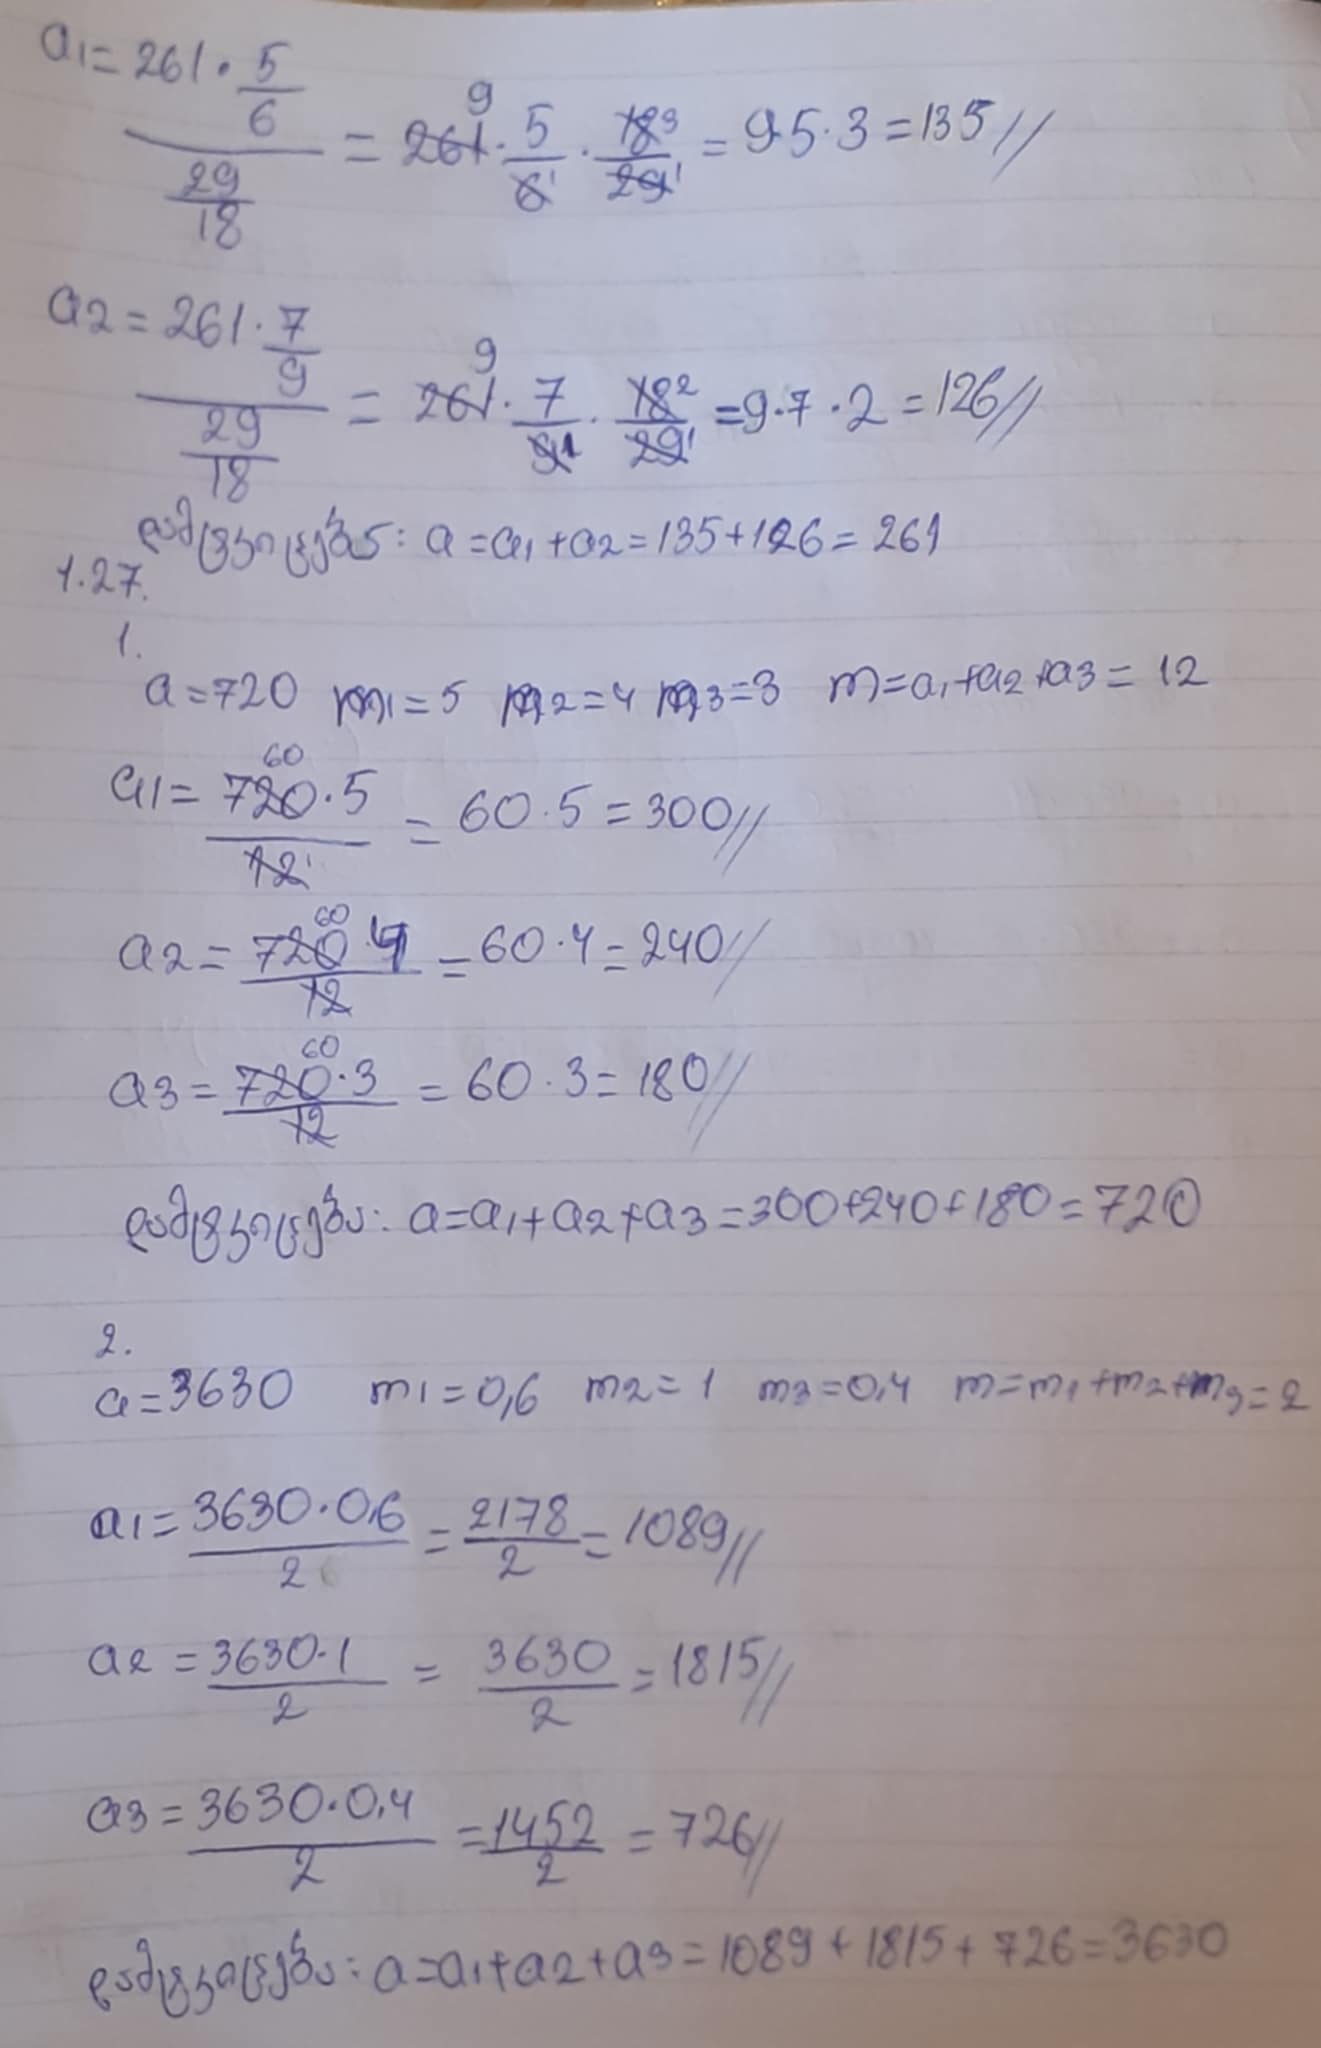 a1 = 261 · 5/6 / 29/18 = 261 9 · 5/6 1 · 18 3/29 1 = 9 5 · 3 = 135//
a2 = 261 · 7/9 / 29/18 = 261 9 · 7/9 1 · 18 2/29 1 = 9 · 7 · 2 = 126//
დამტკიცება: a = a1 + a2 = 135 + 126 = 261
1.27.
1.
a = 720 m1 = 5 m2 = 4 m3 = 3 m = a1 + a2 + a3 = 12
a1 = 720 60 · 5 / 12 1 = 60 · 5 = 300//
a2 = 720 60 · 4 / 12 = 60 · 4 = 240//
a3 = 720 60 · 3 / 12 = 60 · 3 = 180//
დამტკიცება: a = a1 + a2 + a3 = 300 + 240 + 180 = 720
2.
a = 3630 m1 = 0,6 m2 = 1 m3 = 0,4 m = m1 + m2 + m3 = 2
a1 = 3630 · 0,6 / 2 = 2178 / 2 = 1089//
a2 = 3630 · 1 / 2 = 3630 / 2 = 1815//
a3 = 3630 · 0,4 / 2 = 1452 / 2 = 726//
დამტკიცება: a = a1 + a2 + a3 = 1089 + 1815 + 726 = 3630